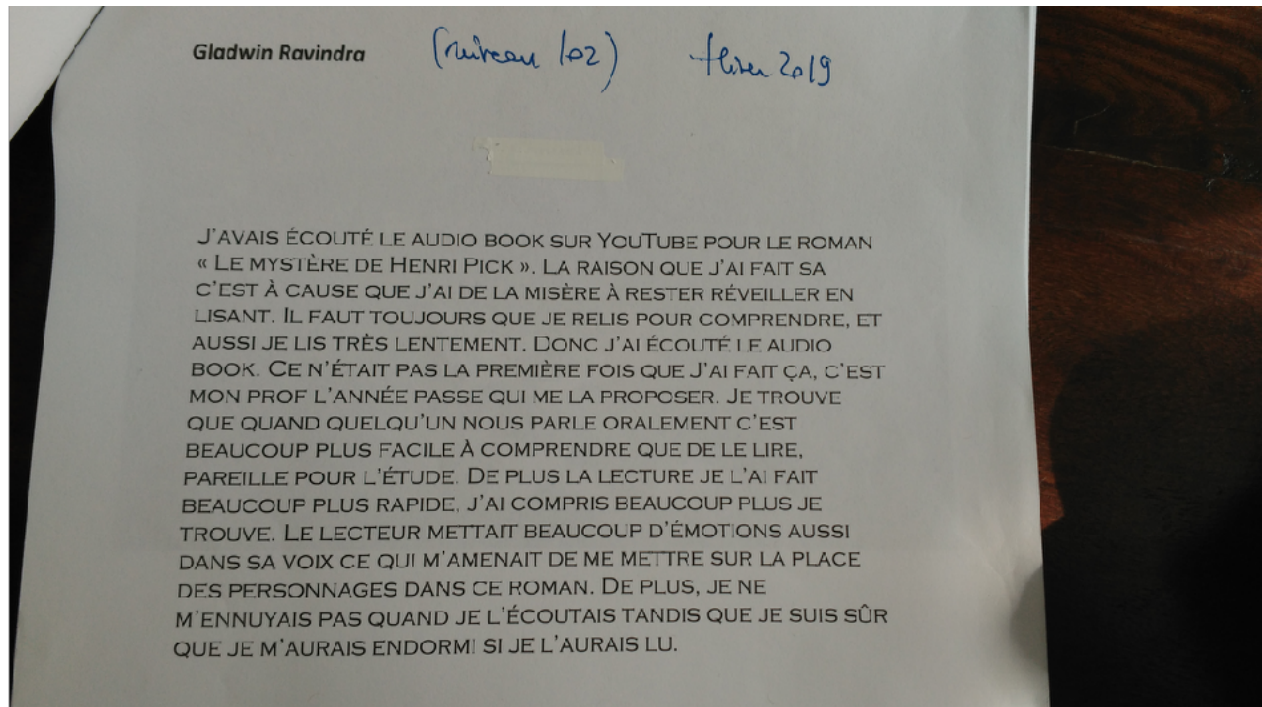 Gladwin Ravindra (niveau 102) Hiver 2019
J'AVAIS ÉCOUTÉ LE AUDIO BOOK SUR YOUTUBE POUR LE ROMAN
« LE MYSTÈRE DE HENRI PICK ». LA RAISON QUE J'AI FAIT SA
C'EST À CAUSE QUE J'AI DE LA MISÈRE À RESTER RÉVEILLER EN
LISANT. IL FAUT TOUJOURS QUE JE RELIS POUR COMPRENDRE, ET
AUSSI JE LIS TRÈS LENTEMENT. DONC J'AI ÉCOUTÉ LE AUDIO
BOOK. CE N'ÉTAIT PAS LA PREMIÈRE FOIS QUE J'AI FAIT ÇA, C'EST
MON PROF L'ANNÉE PASSE QUI ME LA PROPOSER. JE TROUVE
QUE QUAND QUELQU'UN NOUS PARLE ORALEMENT C'EST
BEAUCOUP PLUS FACILE À COMPRENDRE QUE DE LE LIRE,
PAREILLE POUR L'ÉTUDE. DE PLUS LA LECTURE JE L'AI FAIT
BEAUCOUP PLUS RAPIDE, J'AI COMPRIS BEAUCOUP PLUS JE
TROUVE. LE LECTEUR METTAIT BEAUCOUP D'ÉMOTIONS AUSSI
DANS SA VOIX CE QUI M'AMENAIT DE ME METTRE SUR LA PLACE
DES PERSONNAGES DANS CE ROMAN. DE PLUS, JE NE
M'ENNUYAIS PAS QUAND JE L'ÉCOUTAIS TANDIS QUE JE SUIS SÛR
QUE JE M'AURAIS ENDORMI SI JE L'AURAIS LU.